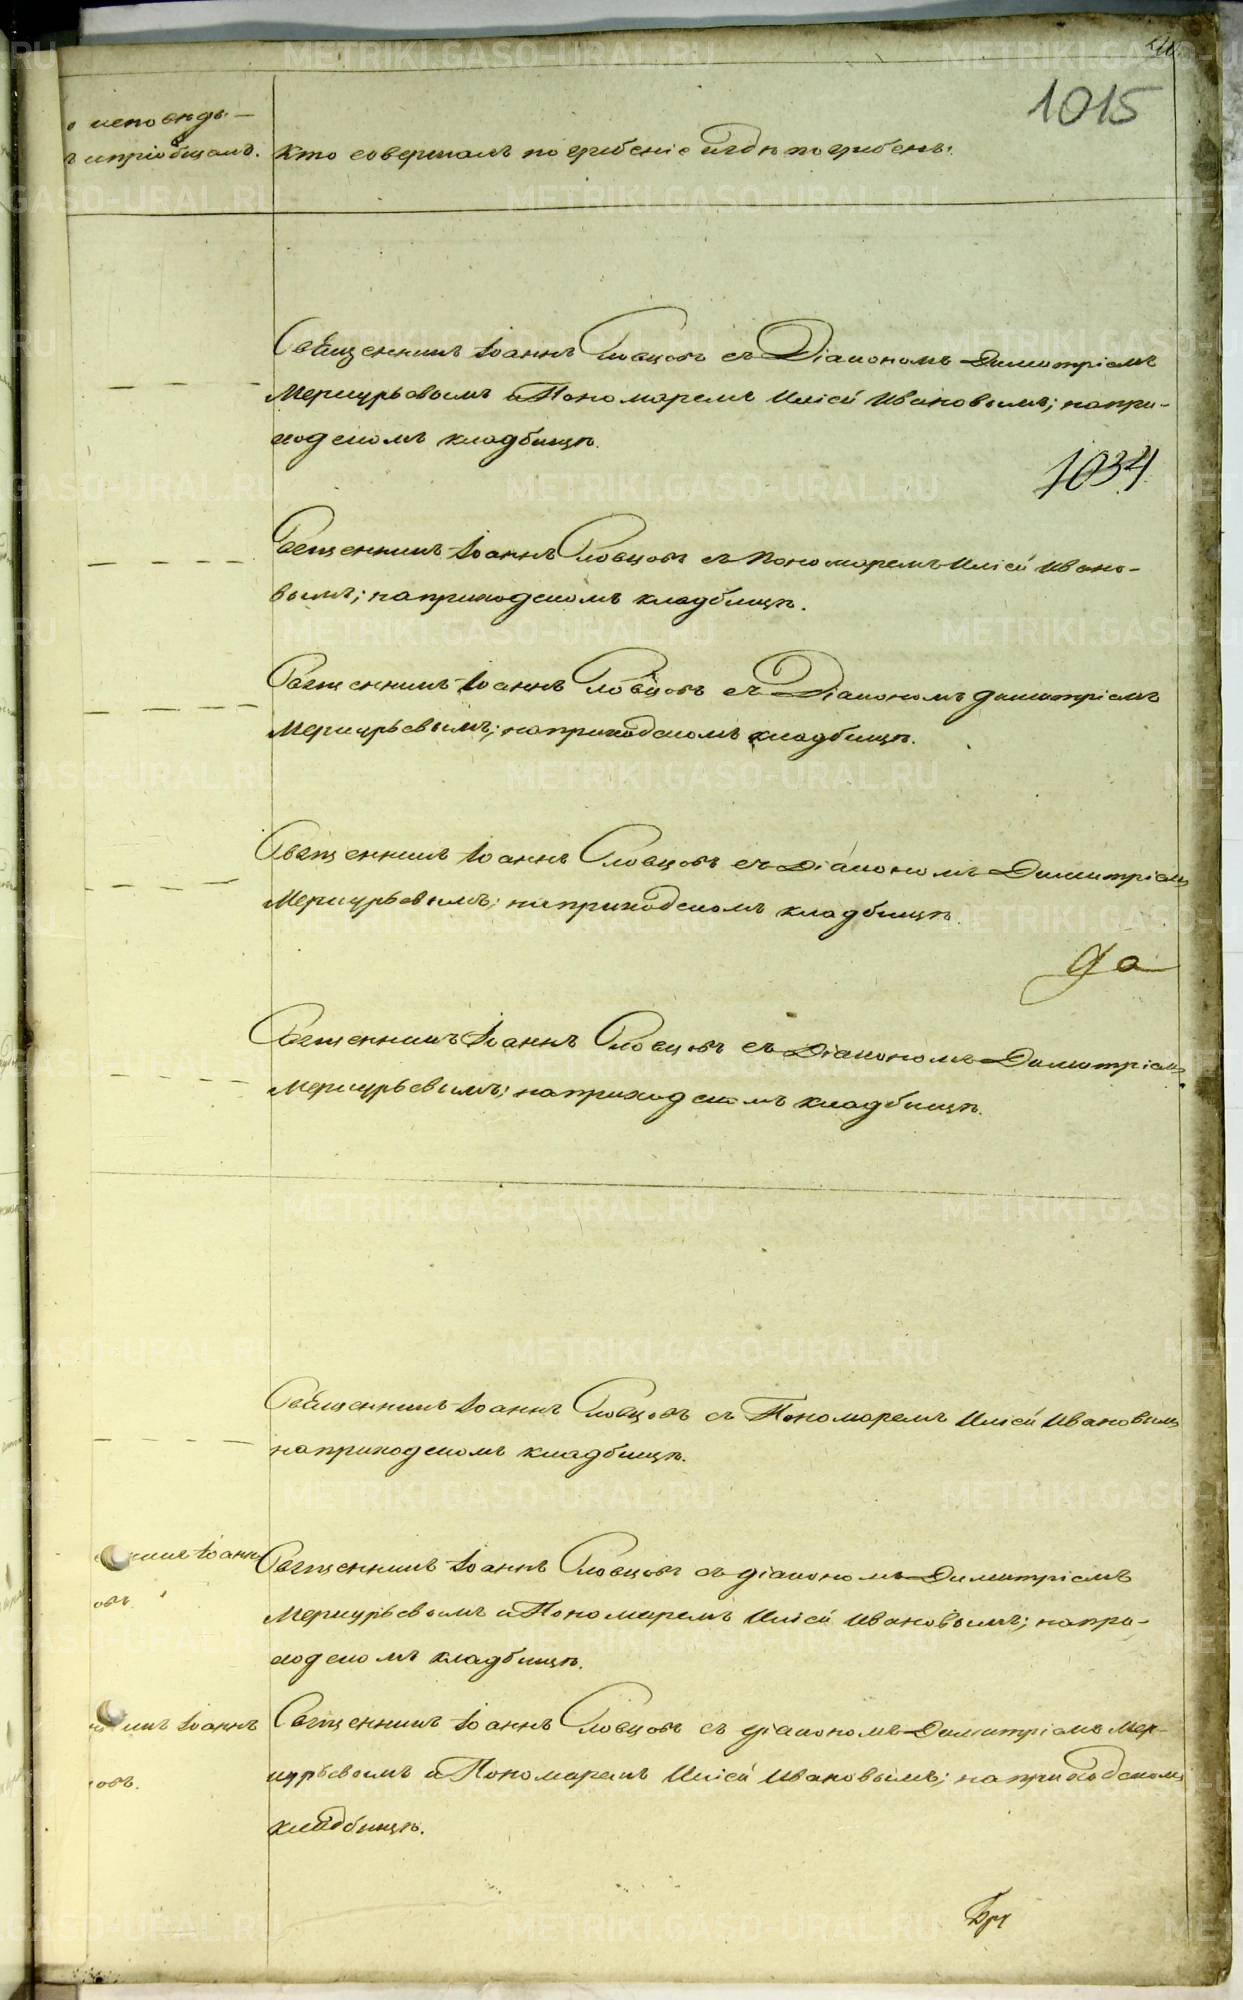 1015
исповѣды-
и пріобщалъ.
Кто совершалъ погребеніе и гдѣ погребенъ.
Священникъ Іоаннъ Словцовъ съ Діакономъ Димитріемъ
Меркурьевымъ и Пономаремъ Иліей Ивановымъ; на при-
ходскомъ кладбищѣ.
1034
Священникъ Іоаннъ Словцовъ съ Пономаремъ Иліей Ивано-
вымъ; на приходскомъ кладбищѣ.
Священникъ Іоаннъ Словцовъ съ Діакономъ Димитріемъ
Меркурьевымъ; на приходскомъ кладбищѣ.
Священникъ Іоаннъ Словцовъ съ Діакономъ Димитріемъ
Меркурьевымъ; на приходскомъ кладбищѣ.
да
Священникъ Іоаннъ Словцовъ съ Діакономъ Димитріемъ
Меркурьевымъ; на приходскомъ кладбищѣ.
Священникъ Іоаннъ Словцовъ съ Пономаремъ Иліей Ивановымъ
на приходскомъ кладбищѣ.
никъ Іоаннъ
Священникъ Іоаннъ Словцовъ съ діакономъ Димитріемъ
овъ.
Меркурьевымъ и Пономаремъ Иліей Ивановымъ; на при-
ходскомъ кладбищѣ.
никъ Іоаннъ
Священникъ Іоаннъ Словцовъ съ діакономъ Димитріемъ Мер-
овъ.
курьевымъ и Пономаремъ Иліей Ивановымъ; на приходскомъ
кладбищѣ.
METRIKI.GASO-URAL.RU